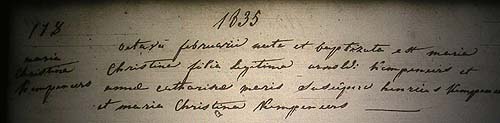 178
1835
maria
Christina
Kempeneers
octava februarii nata et baptizata est maria
Christina filia legitima arnoldi Kempeneers et
annae catharinae maris henricus Kempeneers
et maria Christina Kempeneers